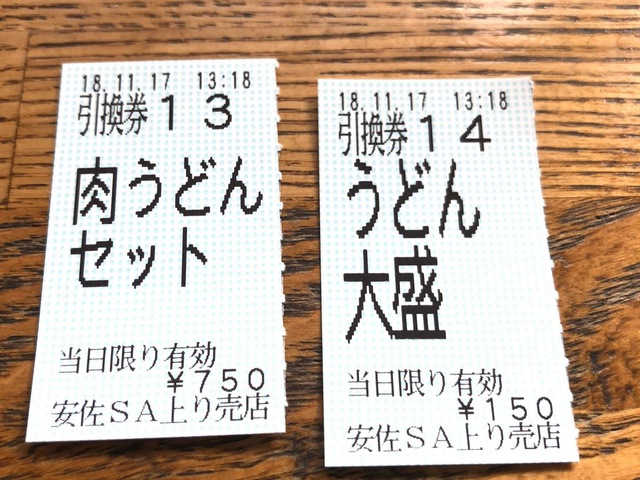 18.11.17 13:18
引換券13
肉うどん
セット
当日限り有効
¥750
安佐SA上り売店
18.11.17 13:18
引換券14
うどん
大盛
当日限り有効
¥150
安佐SA上り売店